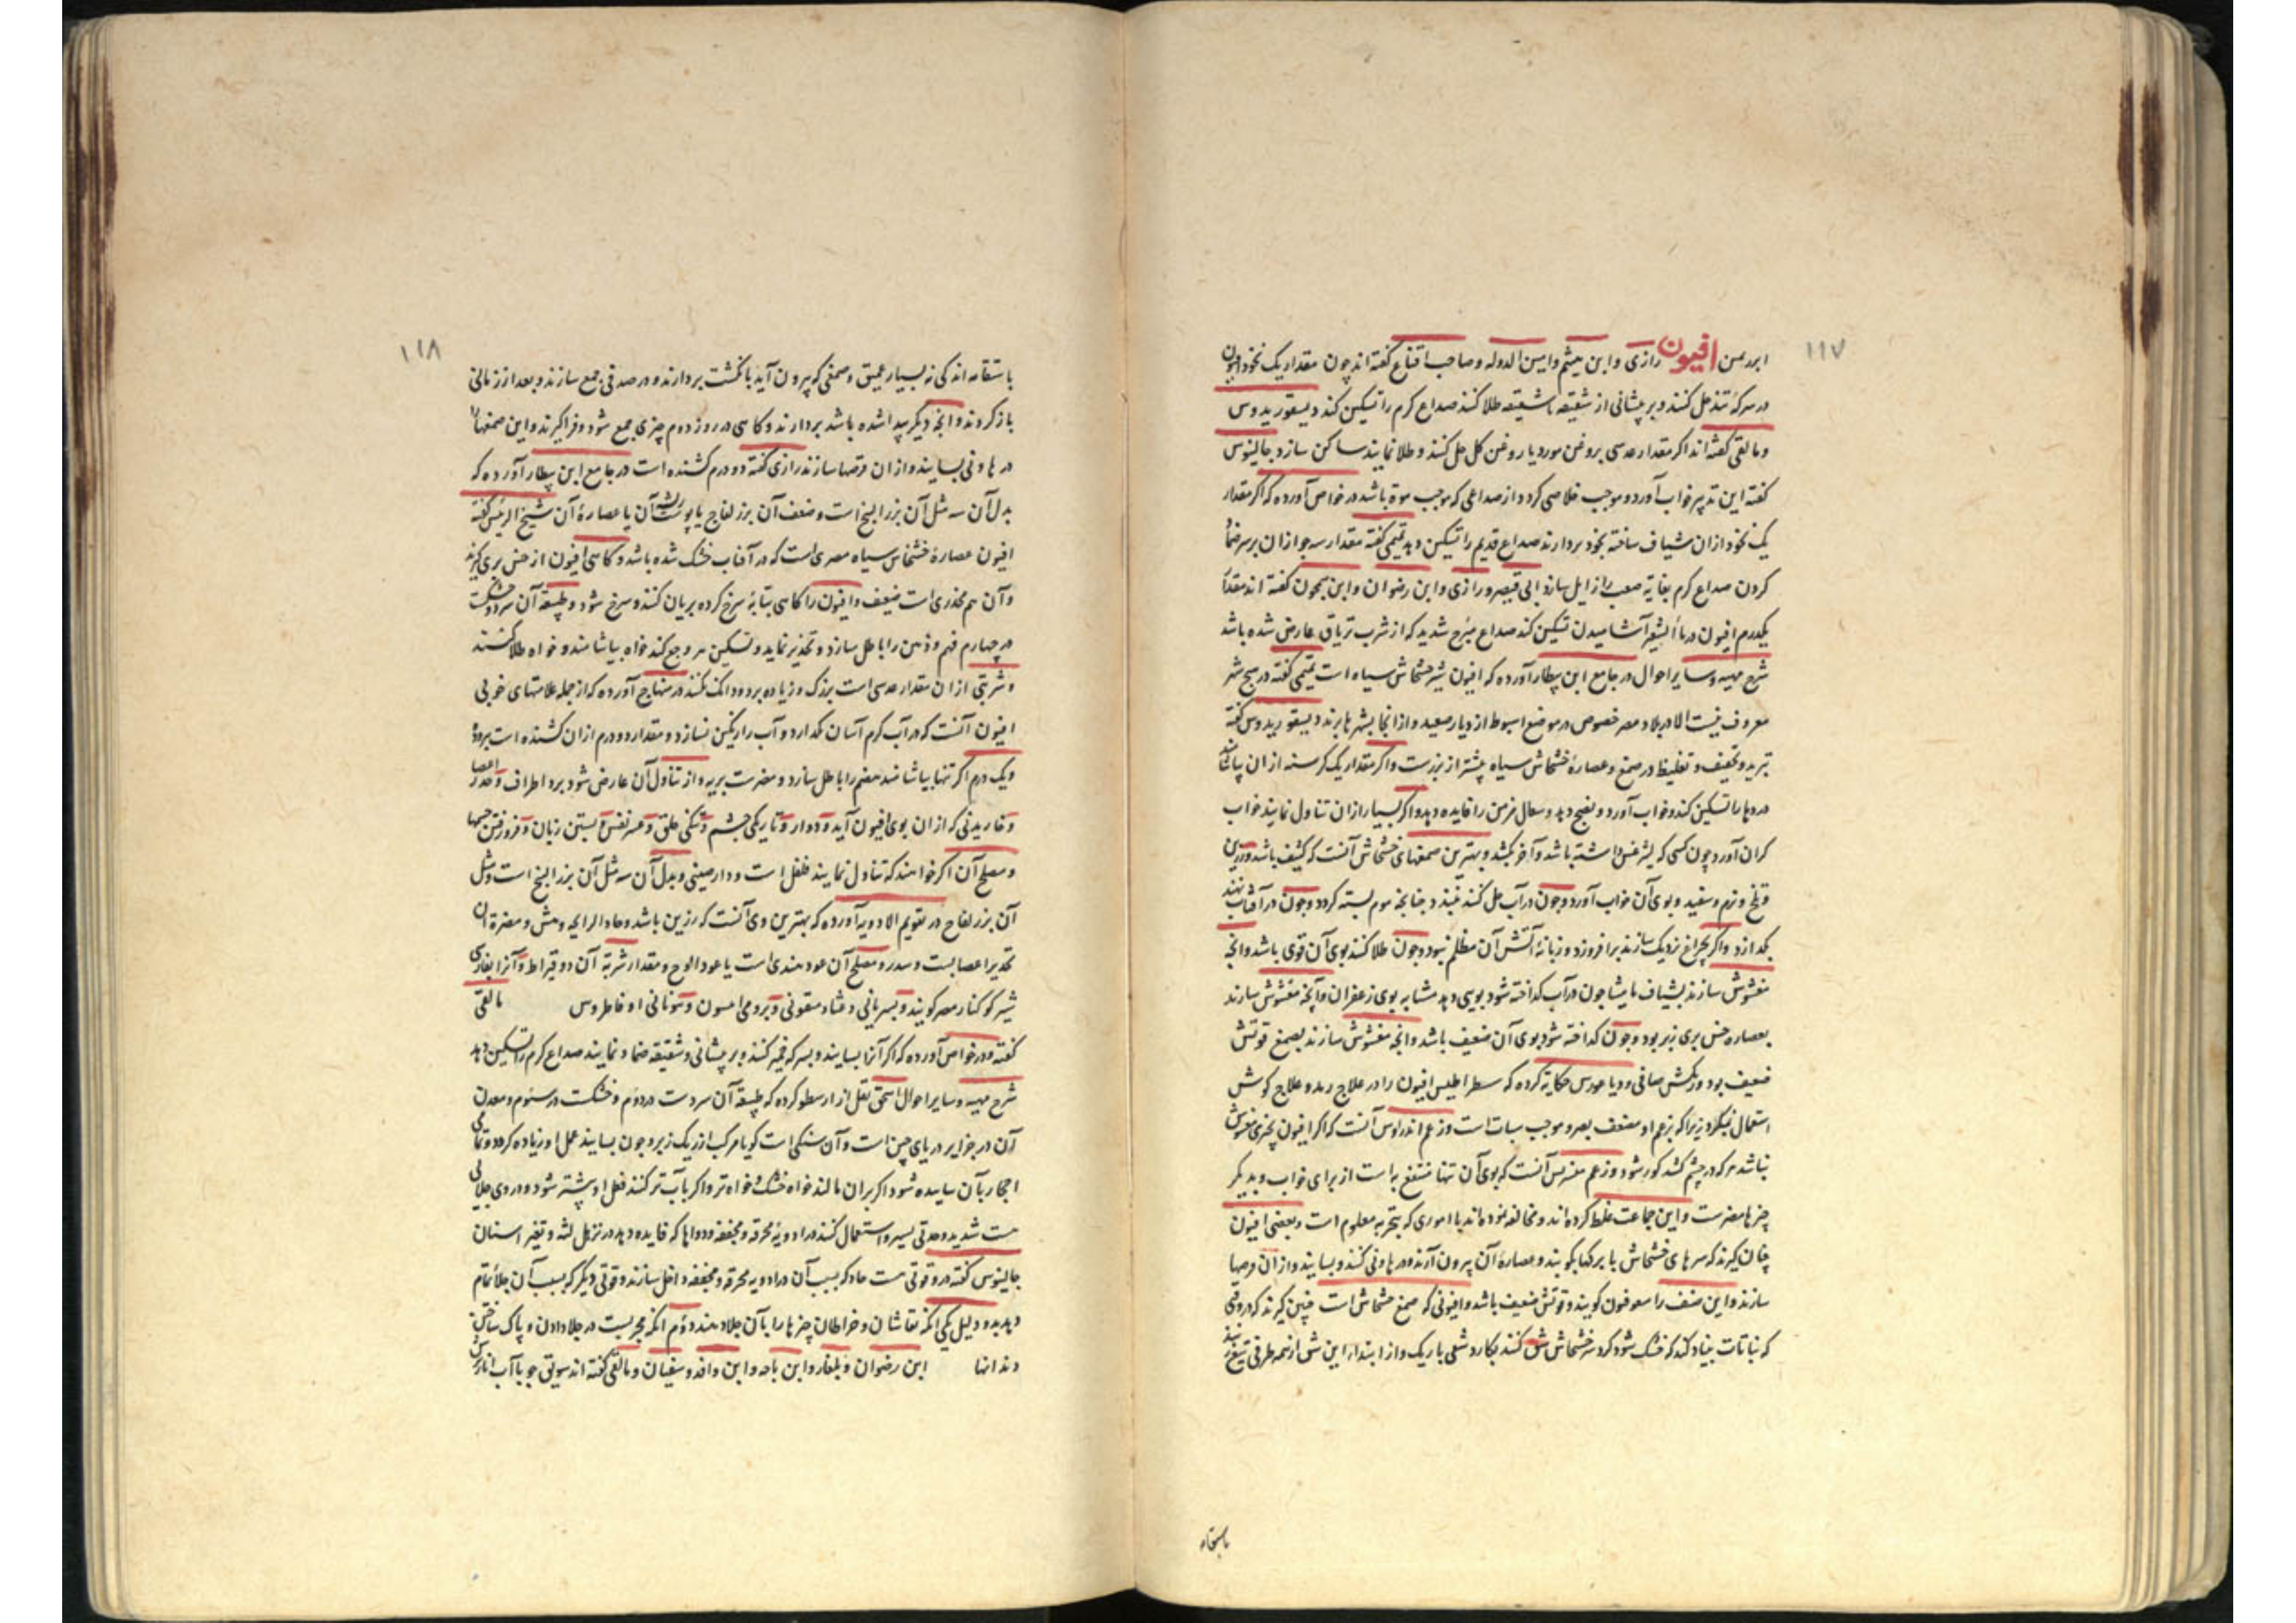 ۱۱۷
افیون رازی و ابن میثم و امین الدوله و صاحب اقناع گفته اند چون مقدار یک نخود افیون
در سرکه تند حل کنند و بر پیشانی از شقیقه تا شقیقه طلا کنند صداع گرم را تسکین کند دیسقوریدوس
و مالقی گفته اند اگر مقدار عدسی بروغن مورد یا روغن گل حل کنند و طلا نمایند ساکن سازد جالینوس
گفته این تدبیر خواب آورد و موجب خلاصی گردد از صداعی که موجب موت باشد در خواص آورده که اگر مقدار
یک نخود از ان شیاف ساخته بخود بردارند صداع قدیم را تسکین دهد تمیمی گفته مقدار سه جو از ان بر سر ضماد
کردن صداع گرم بغایة صعب را زایل سازد و رازی و ابن رضوان و ابن سمجون گفته اند مقدار
یکدرم افیون در ماء الشعیر آشامیدن تسکین کند صداع مبرح شدید که از شرب تریاق عارض شده باشد
شرح مهیه و سایر احوال در جامع ابن بیطار آورده که افیون شیر خشخاش سیاه است تمیمی گفته در هیچ شهر
معروف نیست الا در بلاد مصر خصوص در موضع اسیوط از دیار صعید و از انجا بشهرها برند دیسقوریدوس گفته
تبرید و تجفیف و تغلیظ در صمغ و عصارهٔ خشخاش سیاه بیشتر از بزرست و اگر مقدار یک کرسنه از ان بیاشامند
دردها را تسکین کند و خواب آورد و نضج دهد و سعال مزمن را فایده دهد و اگر بسیار از ان تناول نمایند خواب
گران آورد چون کسی که لیثرغس داشته باشد و آخر بکشد و بهترین صمغهای خشخاش آنست که کثیف باشد و رزین
و تلخ و نرم و سفید و بوی آن خواب آورد و چون در آب حل کنند چنانچه موم بسته گردد و چون در آفتاب نهند
بگدازد و اگر بچراغ نزدیک سازند برافروزد و زبانهٔ آتش آن مظلم نبود و چون طلا کنند بوی آن قوی باشد و انچه
مغشوش سازند بشیاف مامیثا چون در آب گداخته شود بویی دهد مشابه بوی زعفران و آنچه مغشوش سازند
بعصاره خس بری زبر بود و چون گداخته شود بوی آن ضعیف باشد و انچه مغشوش سازند بصمغ قوتش
ضعیف بود و رنگش صافی و دیاغورس حکایة کرده که سطراطیس افیون را در علاج رمد و علاج گوش
استعمال نمیکرد زیرا که بزعم او مضعف بصر و موجب سباتست و زعم اندراوس آنست که اگر افیون بچیزی مغشوش
نباشد هر که در چشم کشد کور شود و زعم آنست که بوی آن تنها منتفع به است از برای خواب و بدیگر
چیزها مضرست و این جماعت غلط کرده اند و مخالفه نموده اند با اموری که بتجربه معلوم است و بعضی افیون
چنان گیرند که سرهای خشخاش با برگها بکوبند و عصارهٔ آن بیرون آرند و در هاونی کنند و بسایند و از ان قرصها
سازند و این صنف را گویند و قوتش ضعیف باشد و افیونی که صمغ خشخاش است چنین گیرند که در وقتی
که نباتات بنیاد کند که خشک شود گرد سر خشخاش شق کنند بکارد شقی باریک و از ابتداء این شق از سه طرف
۱۱۸
باستقامه اندکی نه بسیار عمیق و صمغی که بیرون آید بانگشت بردارند و در صدفی جمع سازند و بعد از زمانی
باز گردند و انچه دیگر پیدا شده باشد بردارند و گاهی در روز دوم چیزی جمع شود و فراگیرند و این صمغها را
در هاونی بسایند و از ان قرصها سازند رازی گفته دو درم کشنده است در جامع ابن بیطار آورده که
بدل آن سه مثل آن بزر البنج است و ضعف آن بزر لفاح یا پوست آن یا عصارهٔ آن شیخ الرئیس گفته
افیون عصارهٔ خشخاش سیاه مصری است که در آفتاب خشک شده باشد و گاهی افیون از خس بری گیرند
و آن هم مخدری است ضعیف و افیون را گاهی بتابهٔ سرخ کرده بریان کنند و سرخ شود و طبیعة آن سرد و خشکست
در چهارم فهم و ذهن را باطل سازد و تخدیر نماید و تسکین هر وجع کند خواه بیاشامند و خواه طلا کنند
و شربتی از ان مقدار عدسی است بزرگ و زیاده بر دو دانگ نکنند در منهاج آورده که از جمله علامتهای خوبی
افیون آنست که در آب گرم آسان بگدازد و آب را رنگین نسازد و مقدار دو درم از ان کشنده است ببرودة
و یک درم اگر تنها بیاشامند هضم را باطل سازد و مضرت بریه و از تناول آن عارض شود برد اطراف و خدر اعضا
و خاریدنی که از ان بوی افیون آید و دوار و تاریکی چشم و تنگی حلق و عسر نفس و بستن زبان و فرو رفتن چشمها
و مصلح آن اگر خواهند که تناول نمایند فلفل است و دارچینی و بدل آن سه مثل آن بزر البنج است و مثل
آن بزر لفاح در تقویم الادویه آورده که بهترین وی آنست که رزین باشد و حاد الرایحه و هش و مضرة آن
تخدیر اعصابست و سدر و مصلح آن عود هندی است یا عود الوج و مقدار شربة آن دو قیراط و آنرا بفارسی
شیر کوکنار مصر گویند و بسریانی و برومی و یونانی مالقی
گفته و در خواص آورده که اگر آنرا بسایند و بسرکه خمیر کنند و بر پیشانی و شقیقه ضماد نمایند صداع گرم را تسکین دهد
شرح مهیه و سایر احوال اسحق نقل از ارسطو کرده که طبیعة آن سردست در دوم و خشکست در سیوم و معدن
آن در جزایر دریای چین است و آن سنگی است گویا مرکب از ریک زبر و چون بسایند عمل او زیاده گردد و تمامی
احجار بآن ساییده شود اگر بران مالند خواه خشک و خواه تر و اگر بآب تر کنند فعل او بیشتر شود و در وی جلائی
هست شدید و حدتی یسیر و استعمال کنند در ادویهٔ محرقه و مجففه و دواها که فایده دهد در ترهل لثه و تغیر اسنان
جالینوس گفته در وی قوتی هست حاد که بسبب آن در ادویه محرقه و مجففه داخل سازند و قوتی دیگر که بسبب آن جلاء تمام
دهد بدو دلیل یکی آنکه نقاشان و خراطان چیزها را بآن جلا دهند دوم انکه مجربست در جلا دادن و پاک ساختن
دندانها ابن رضوان و ابن باجه و ابن وافد و سفیان و مالقی گفته اند سویق جو با آب انار